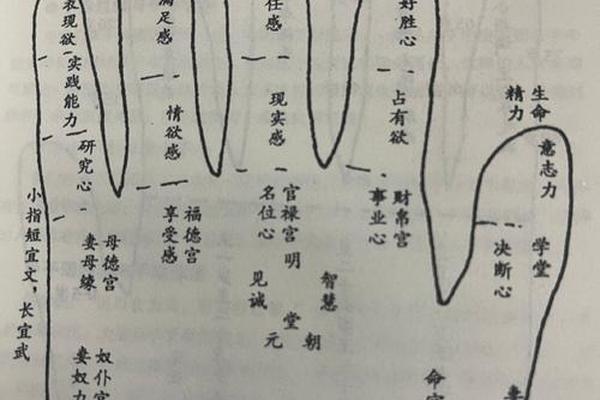 表现欲
实践能力
研究心
小指短宜文，长宜武
母德宫
妻母缘
奴仆宫
妻奴力
满足感
情欲感
福德宫
享受感
任感
现实感
官禄宫
名位心
明
见诚
堂
元
智慧
朝
好胜心
占有欲
财帛宫
事业心
生命
精力
意志力
决断心
学堂
命宫
妻